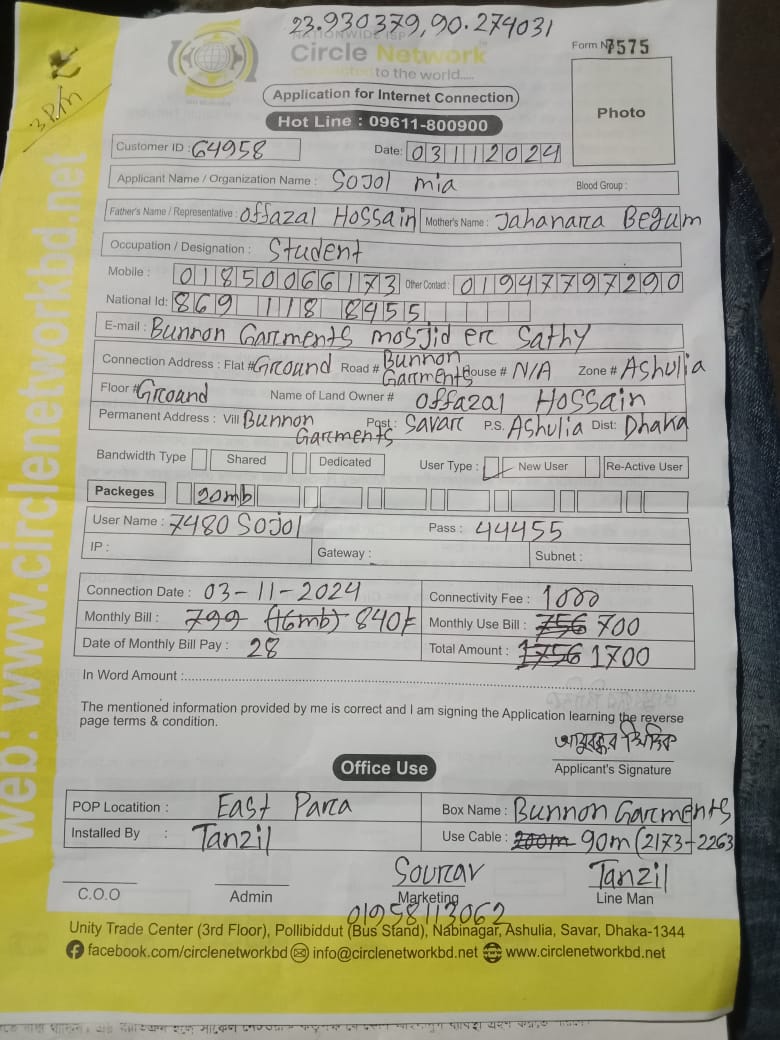 23.930379, 90.274031
NATIONWIDE ISP
Circle Network
Connected to the world.....
Form No 7575
3 P/m
Application for Internet Connection
Photo
Hot Line : 09611-800900
Customer ID : 64958 Date: 03112024
Applicant Name / Organization Name : Sojol mia Blood Group :
Father's Name / Representative : Offazal Hossain Mother's Name : Jahanara Begum
Occupation / Designation : Student
Mobile : 01850066173 Other Contact : 01947797290
National Id: 869 118 8455
E-mail : Bunnon Garments mosjid er Sathy
Connection Address : Flat # Ground Road # Bunnon Garments House # N/A Zone # Ashulia
Floor # Ground Name of Land Owner # Offazal Hossain
Permanent Address : Vill Bunnon Garments Post : Savar P.S. Ashulia Dist: Dhaka
Bandwidth Type Shared Dedicated User Type : New User Re-Active User
Packeges 20mb
User Name : 7480 Sojol Pass : 44455
IP : Gateway : Subnet :
Connection Date : 03-11-2024 Connectivity Fee : 1000
Monthly Bill : 799 (16mb) 840/= Monthly Use Bill : 756 700
Date of Monthly Bill Pay : 28 Total Amount : 1756 1700
In Word Amount :
The mentioned information provided by me is correct and I am signing the Application learning the reverse
page terms & condition.
Applicant's Signature
Office Use
POP Locatition : East Para Box Name : Bunnon Garments
Installed By : Tanzil Use Cable : 200m 90m (2173-2263
Sourav Tanzil
C.O.O Admin Marketing Line Man
01958113062
Unity Trade Center (3rd Floor), Pollibiddut (Bus Stand), Nabinagar, Ashulia, Savar, Dhaka-1344
facebook.com/circlenetworkbd info@circlenetworkbd.net www.circlenetworkbd.net
web: www.circlenetworkbd.net